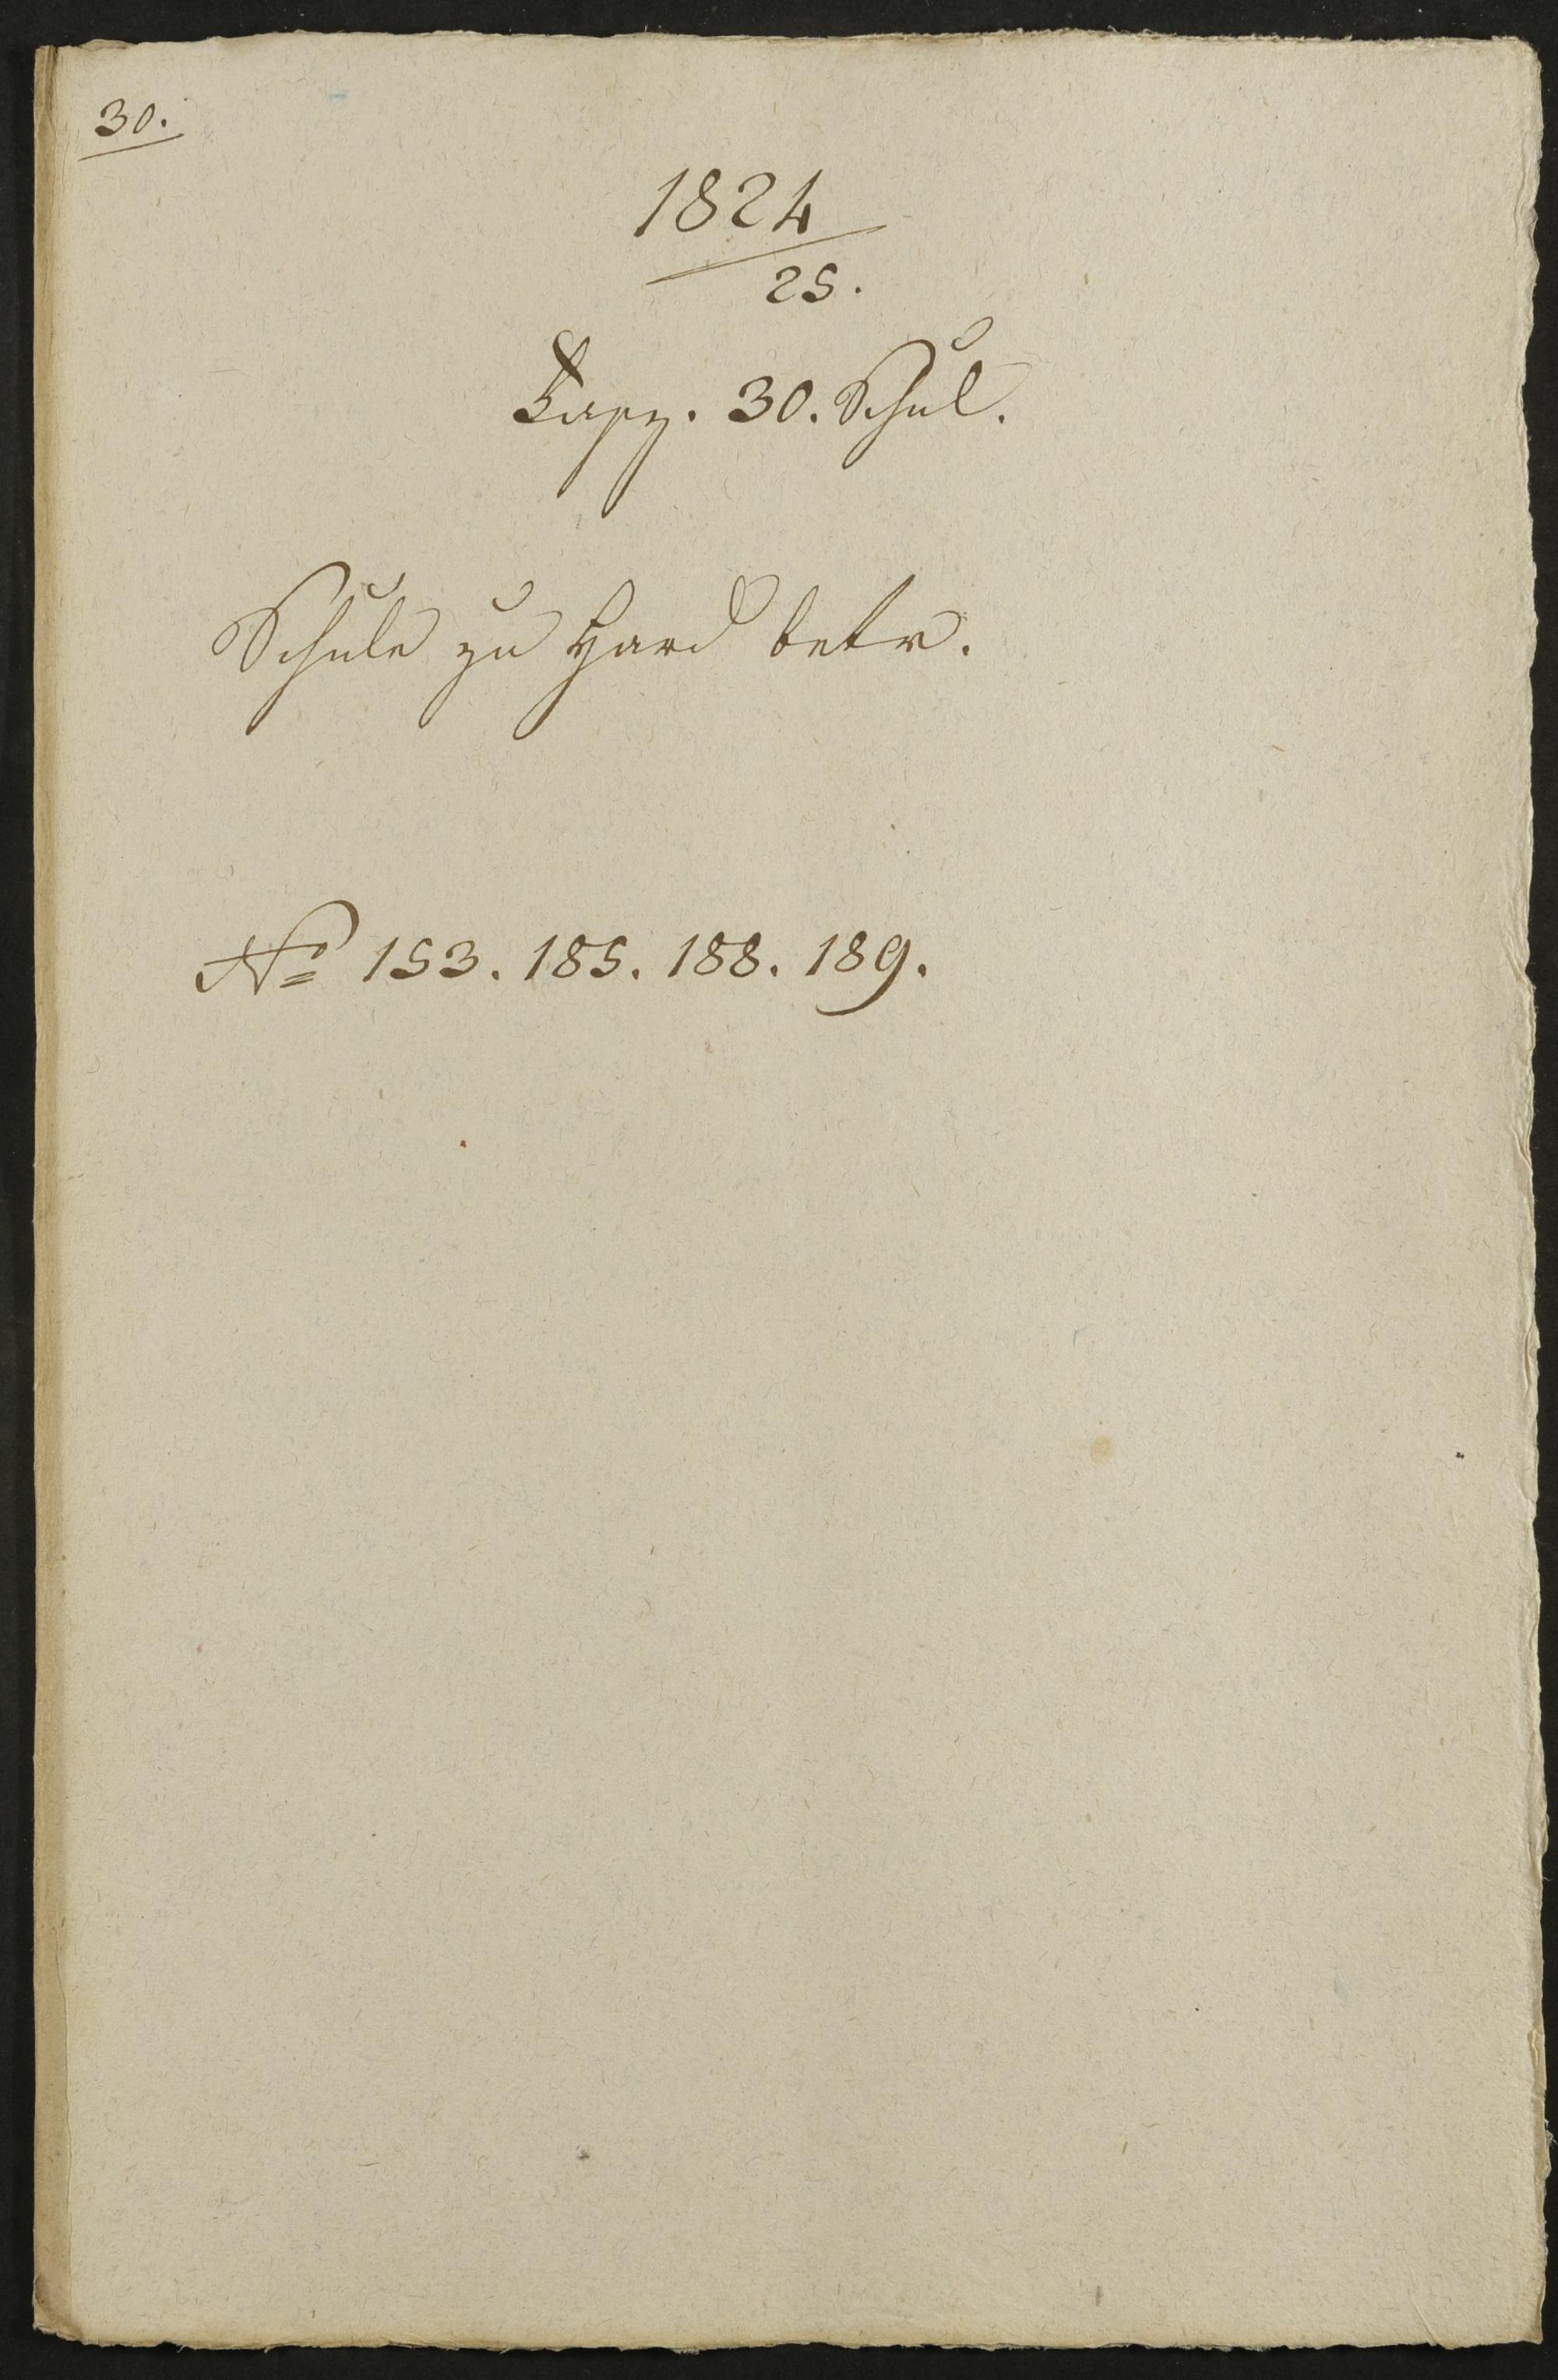 30.
1824
25.
Fasz. 30. Schul.
Schule zu Hard betr.
No 153. 185. 188. 189.